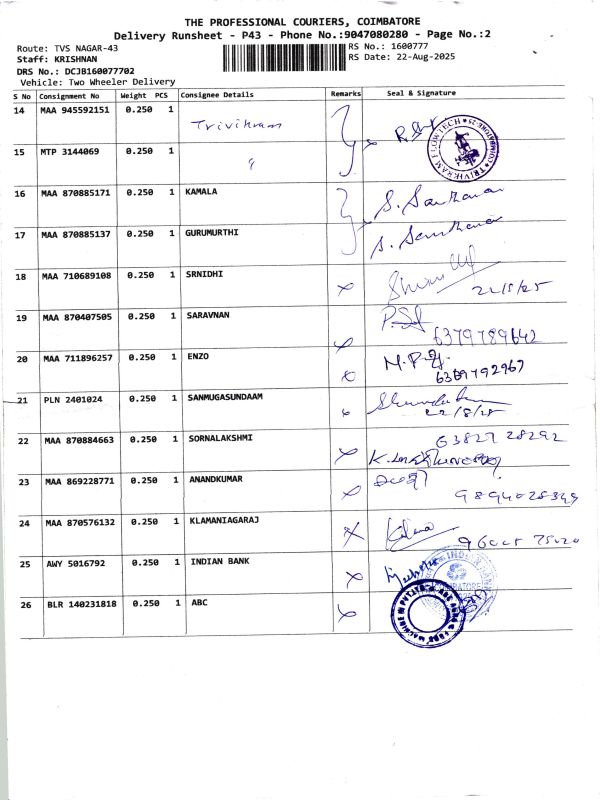 THE PROFESSIONAL COURIERS, COIMBATORE
Delivery Runsheet - P43 - Phone No.:9047080280 - Page No.:2
Route: TVS NAGAR-43 RS No.: 1600777
Staff: KRISHNAN RS Date: 22-Aug-2025
DRS No.: DCJB160077702
Vehicle: Two Wheeler Delivery
S No Consignment No Weight PCS Consignee Details Remarks Seal & Signature
14 MAA 945592151 0.250 1 Trivikram
15 MTP 3144069 0.250 1 "
TRIVIKRAM FLOWTECH
16 MAA 870885171 0.250 1 KAMALA
17 MAA 870885137 0.250 1 GURUMURTHI
18 MAA 710689108 0.250 1 SRNIDHI
19 MAA 870407505 0.250 1 SARAVNAN
6379789642
20 MAA 711896257 0.250 1 ENZO
6369792967
21 PLN 2401024 0.250 1 SANMUGASUNDAAM
22/8/25
22 MAA 870884663 0.250 1 SORNALAKSHMI 63827 28292
23 MAA 869228771 0.250 1 ANANDKUMAR
24 MAA 870576132 0.250 1 KLAMANIAGARAJ
25 AWY 5016792 0.250 1 INDIAN BANK
26 BLR 140231818 0.250 1 ABC